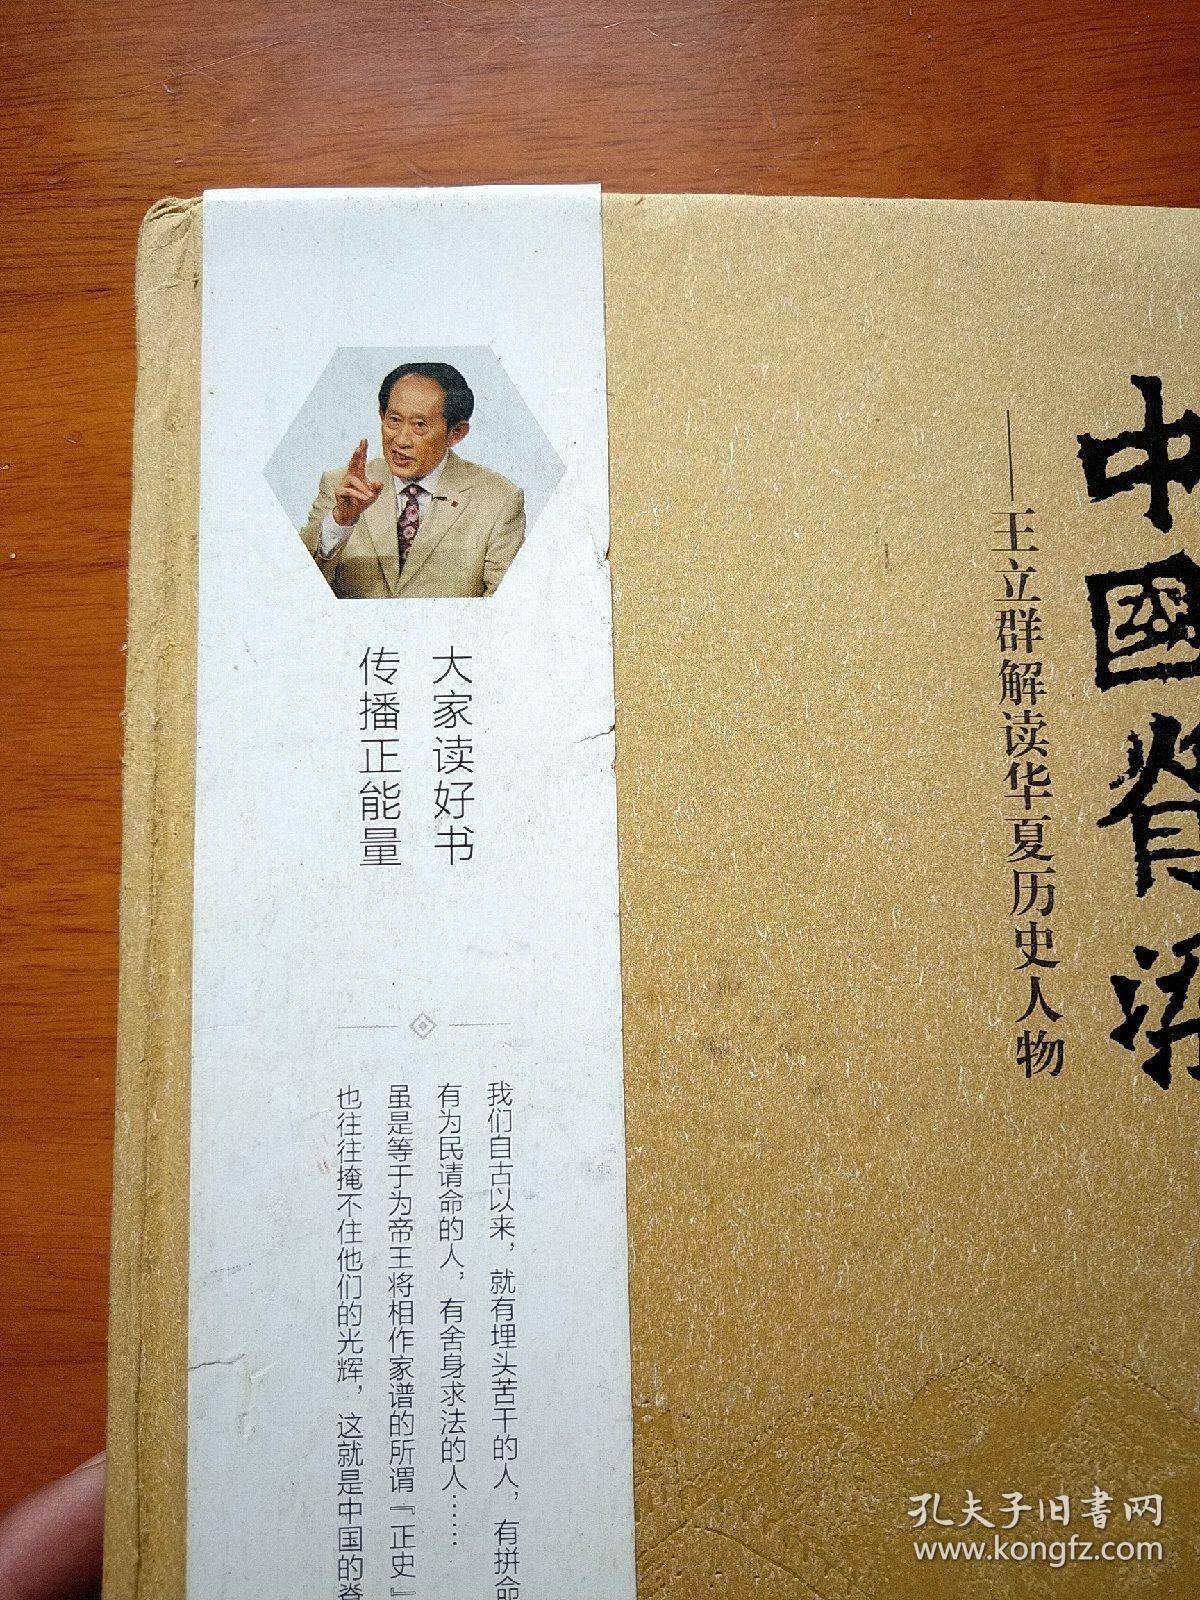 中國脊梁
——王立群解读华夏历史人物
大家读好书
传播正能量
我们自古以来，就有埋头苦干的人，有拼命
有为民请命的人，有舍身求法的人……
虽是等于为帝王将相作家谱的所谓『正史』
也往往掩不住他们的光辉，这就是中国的脊
孔夫子旧书网
www.kongfz.com